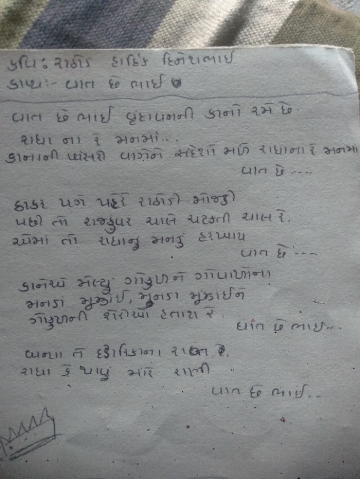 કવિ: રાઠોડ હાર્દિક દિનેશભાઈ
કાવ્ય:- વાત છે ભાઈ
વાત છે ભાઈ વૃંદાવનની કાનો રમે છે
રાધા ના રે મનમાં...
કાનાની વાંસળી વાગેને સંદેશો મળે રાધાના રે મનમાં
વાત છે....
ઠાકર પગે પહેરે રાઠોડી મોજડી
પછી તો રાજદુવર ચાલે ચટકતી ચાલ રે
એમાં તો રાધાનુ મનડુ હરખાય
વાત છે....
કાનએ મેલ્યું ગોકુળને ગોવાળોના
મનડા મૂંઝાઈ, મનડા મૂંઝાઈને
ગોકુળની શેરીઓ હતાશ રે
વાત છે ભાઈ...
બન્યા તે દ્વારિકાના રાજા રે,
રાધા કે પાછુ મારે
વાત છે ભાઈ...